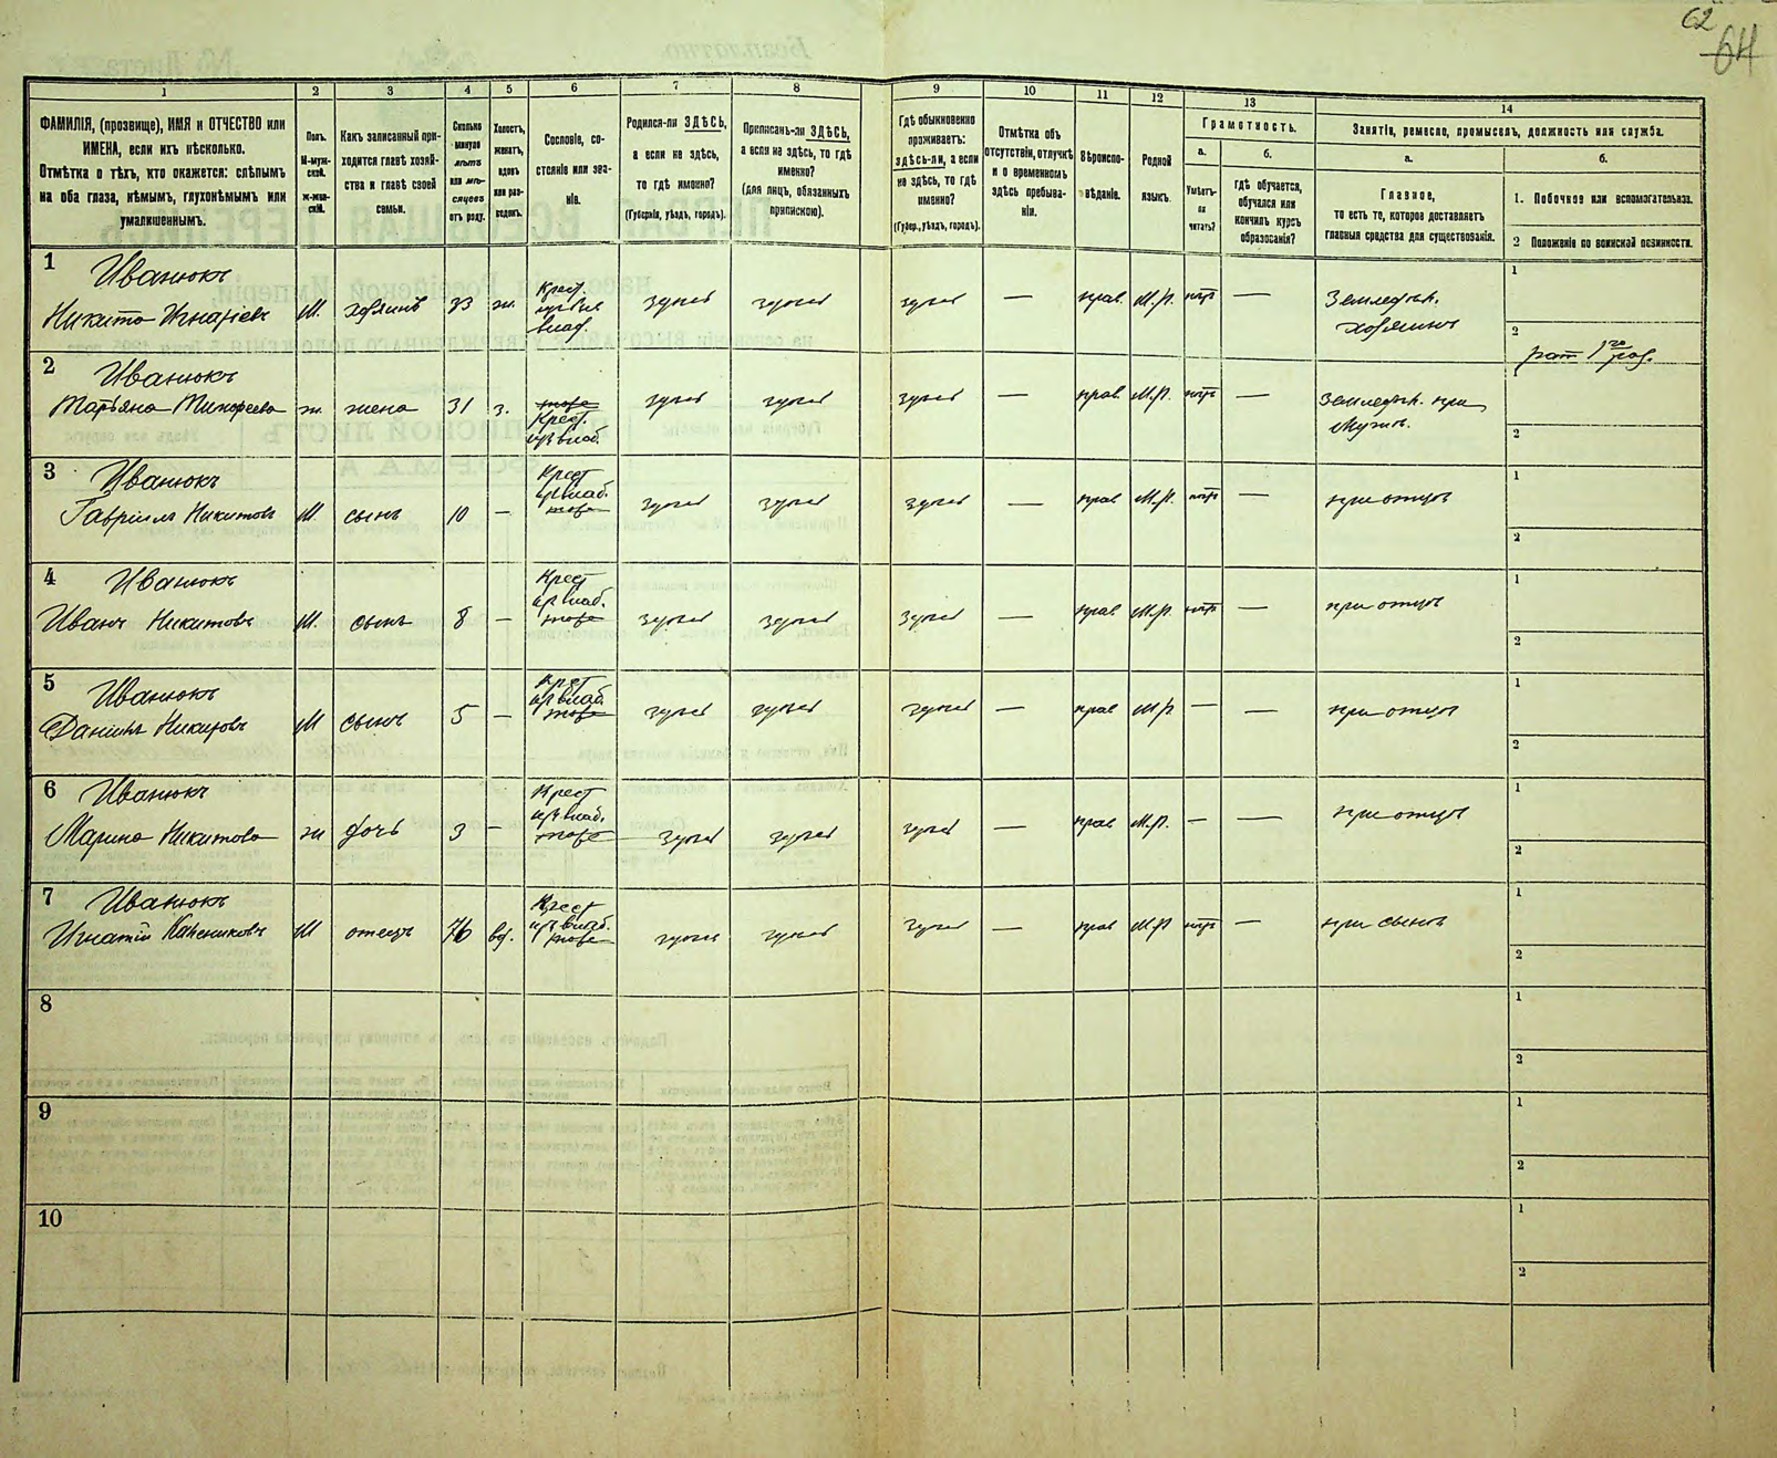 62
64
1
2
3
4
5
6
7
8
9
10
11
12
13
14
ФАМИЛІЯ, (прозвище), ИМЯ и ОТЧЕСТВО или
ИМЕНА, если ихъ нѣсколько.
Отмѣтка о тѣхъ, кто окажется: слѣпымъ
на оба глаза, нѣмымъ, глухонѣмымъ или
умалишеннымъ.
Полъ.
М-муж-
ской.
ж-жен-
скій.
Какъ записанный при-
ходится главѣ хозяй-
ства и главѣ своей
семьи.
Сколько
минуло
лѣтъ
или мѣ-
сяцевъ
отъ роду.
Холостъ,
женатъ,
вдовъ
или раз-
веденъ.
Сословіе, со-
стояніе или зва-
ніе.
Родился-ли ЗДѢСЬ,
а если не здѣсь,
то гдѣ именно?
(Губернія, уѣздъ, городъ).
Приписанъ-ли ЗДѢСЬ,
а если не здѣсь, то гдѣ
именно?
(для лицъ, обязанныхъ
припискою).
Гдѣ обыкновенно
проживаетъ:
здѣсь-ли, а если
не здѣсь, то гдѣ
именно?
(Губер., уѣздъ, городъ).
Отмѣтка объ
отсутствіи, отлучкѣ
и о временномъ
здѣсь пребыва-
ніи.
Вѣроиспо-
вѣданіе.
Родной
языкъ.
Грамотность.
а.
Умѣетъ-
ли
читать?
б.
Гдѣ обучается,
обучался или
кончилъ курсъ
образованія?
Занятіе, ремесло, промыселъ, должность или служба.
а.
Главное,
то есть то, которое доставляетъ
главныя средства для существованія.
б.
1. Побочное или вспомогательное.
2 Положеніе по воинской повинности.
1
Иванюкъ
Никита Игнатіевъ М. хозяинъ 33 ж. Крест. изъ влад. здѣсь здѣсь здѣсь — прав. М.р. нѣтъ — Земледѣл. хозяинъ
1
2
рат 1го раз.
2
Иванюкъ
Татьяна Тимофеева ж. жена 31 з. Крест. изъ влад. здѣсь здѣсь здѣсь — прав. М.р. нѣтъ — Земледѣл. при мужѣ.
1
2
3
Иванюкъ
Гавріилъ Никитовъ М. сынъ 10 — Крест изъ влад. тоже здѣсь здѣсь здѣсь — прав М.р. нѣтъ — при отцѣ
1
2
4
Иванюкъ
Иванъ Никитовъ М. сынъ 8 — Крест изъ влад. тоже здѣсь здѣсь здѣсь — прав М.р. нѣтъ — при отцѣ
1
2
5
Иванюкъ
Даніилъ Никитовъ М сынъ 5 — Крест изъ влад. тоже здѣсь здѣсь здѣсь — прав М.р. — — при отцѣ
1
2
6
Иванюкъ
Марина Никитова ж дочь 3 — Крест изъ влад. тоже здѣсь здѣсь здѣсь — прав М.р. — — при отцѣ
1
2
7
Иванюкъ
Игнатій М отецъ 76 вд. Крест изъ влад. тоже здѣсь здѣсь здѣсь — прав М.р нѣтъ — при сынѣ
1
2
8
1
2
9
1
2
10
1
2